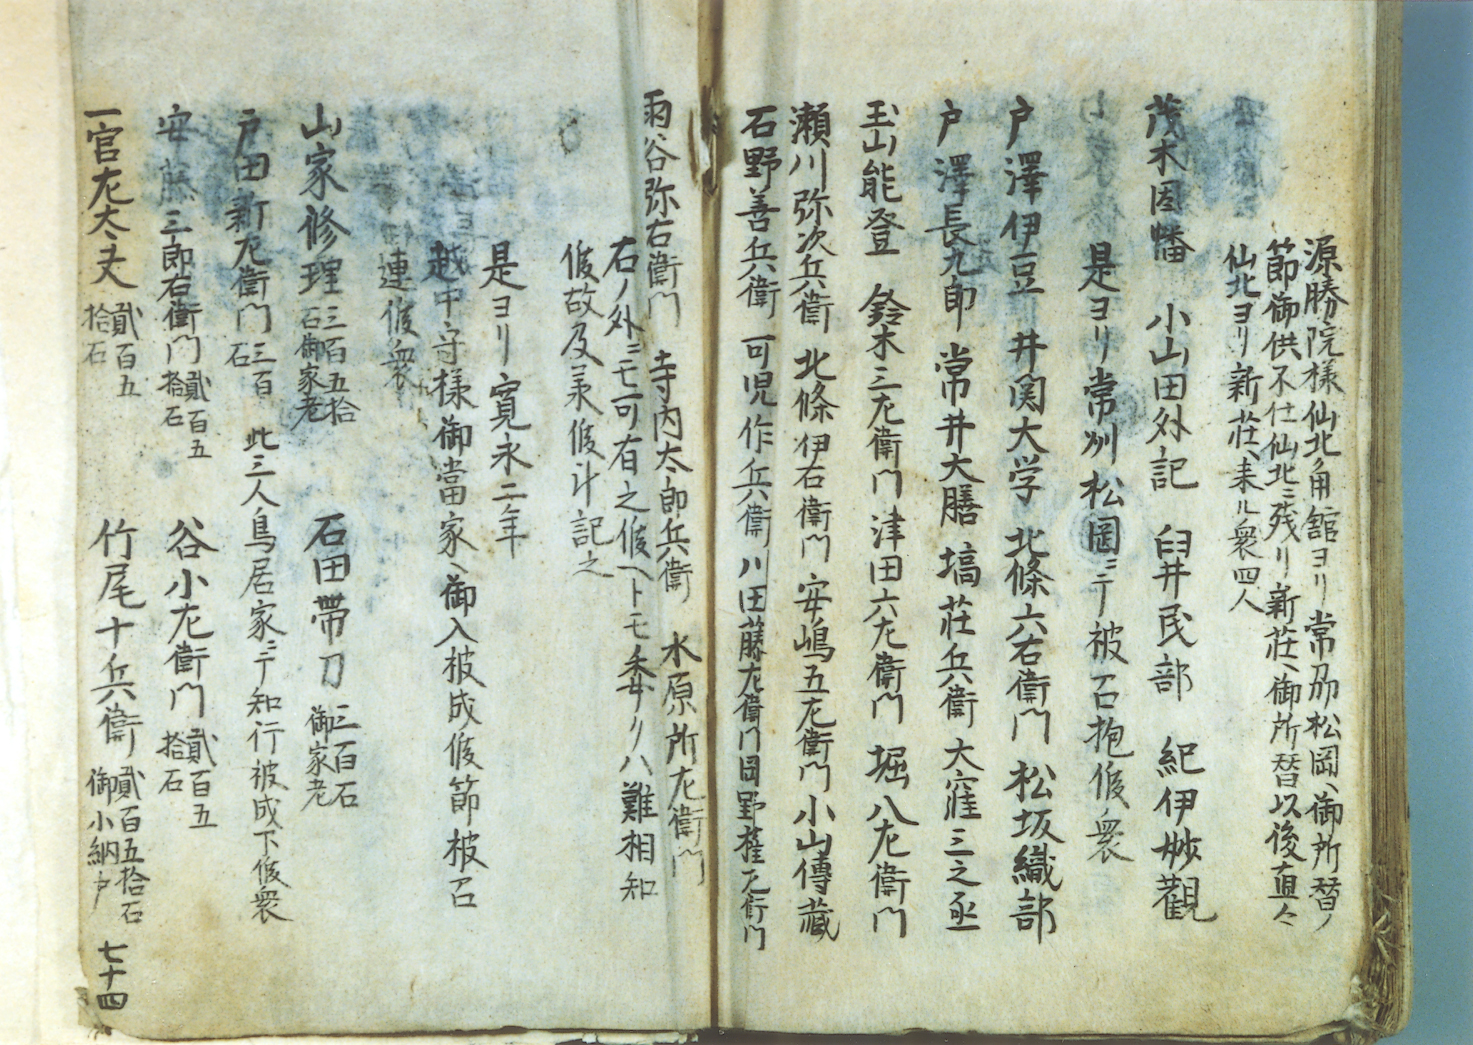 源勝院様仙北角舘ヨリ常刕松岡ヘ御所替ノ
節御供不仕仙北ニ残リ新莊ヘ御所替以後直々
仙北ヨリ新莊ヘ来ル衆四人
茂木因幡 小山田外記 臼井民部 紀伊妙觀
是ヨリ常州松岡ニテ被召抱候衆
戸澤伊豆 井関大学 北條六右衛門 松坂織部
戸澤長九郎 常井大膳 塙莊兵衛 大窪三之丞
玉山能登 鈴木三左衛門 津田六左衛門 堀八左衛門
瀬川弥次兵衛 北條伊右衛門 安嶋五左衛門 小山傳藏
石野善兵衛 可児作兵衛 川田藤左衛門 岡野権左衛門
雨谷弥右衛門 寺内太郎兵衛 水原所左衛門
右ノ外ニモ可有之候ヘトモ委リハ難相知
候故及承候計記之
是ヨリ寛永二年
越中守様御當家ヘ御入被成候節被召
連候衆
山家修理 三百五拾石御家老 石田帯刀 三百石御家老
戸田新左衛門 三百石 此三人鳥居家ニテ知行被成下候衆
安藤三郎右衛門 貳百五拾石 谷小左衛門 貳百五拾石
一宮左太夫 貳百五拾石 竹尾十兵衛 貳百五拾石御小納戸
七十四